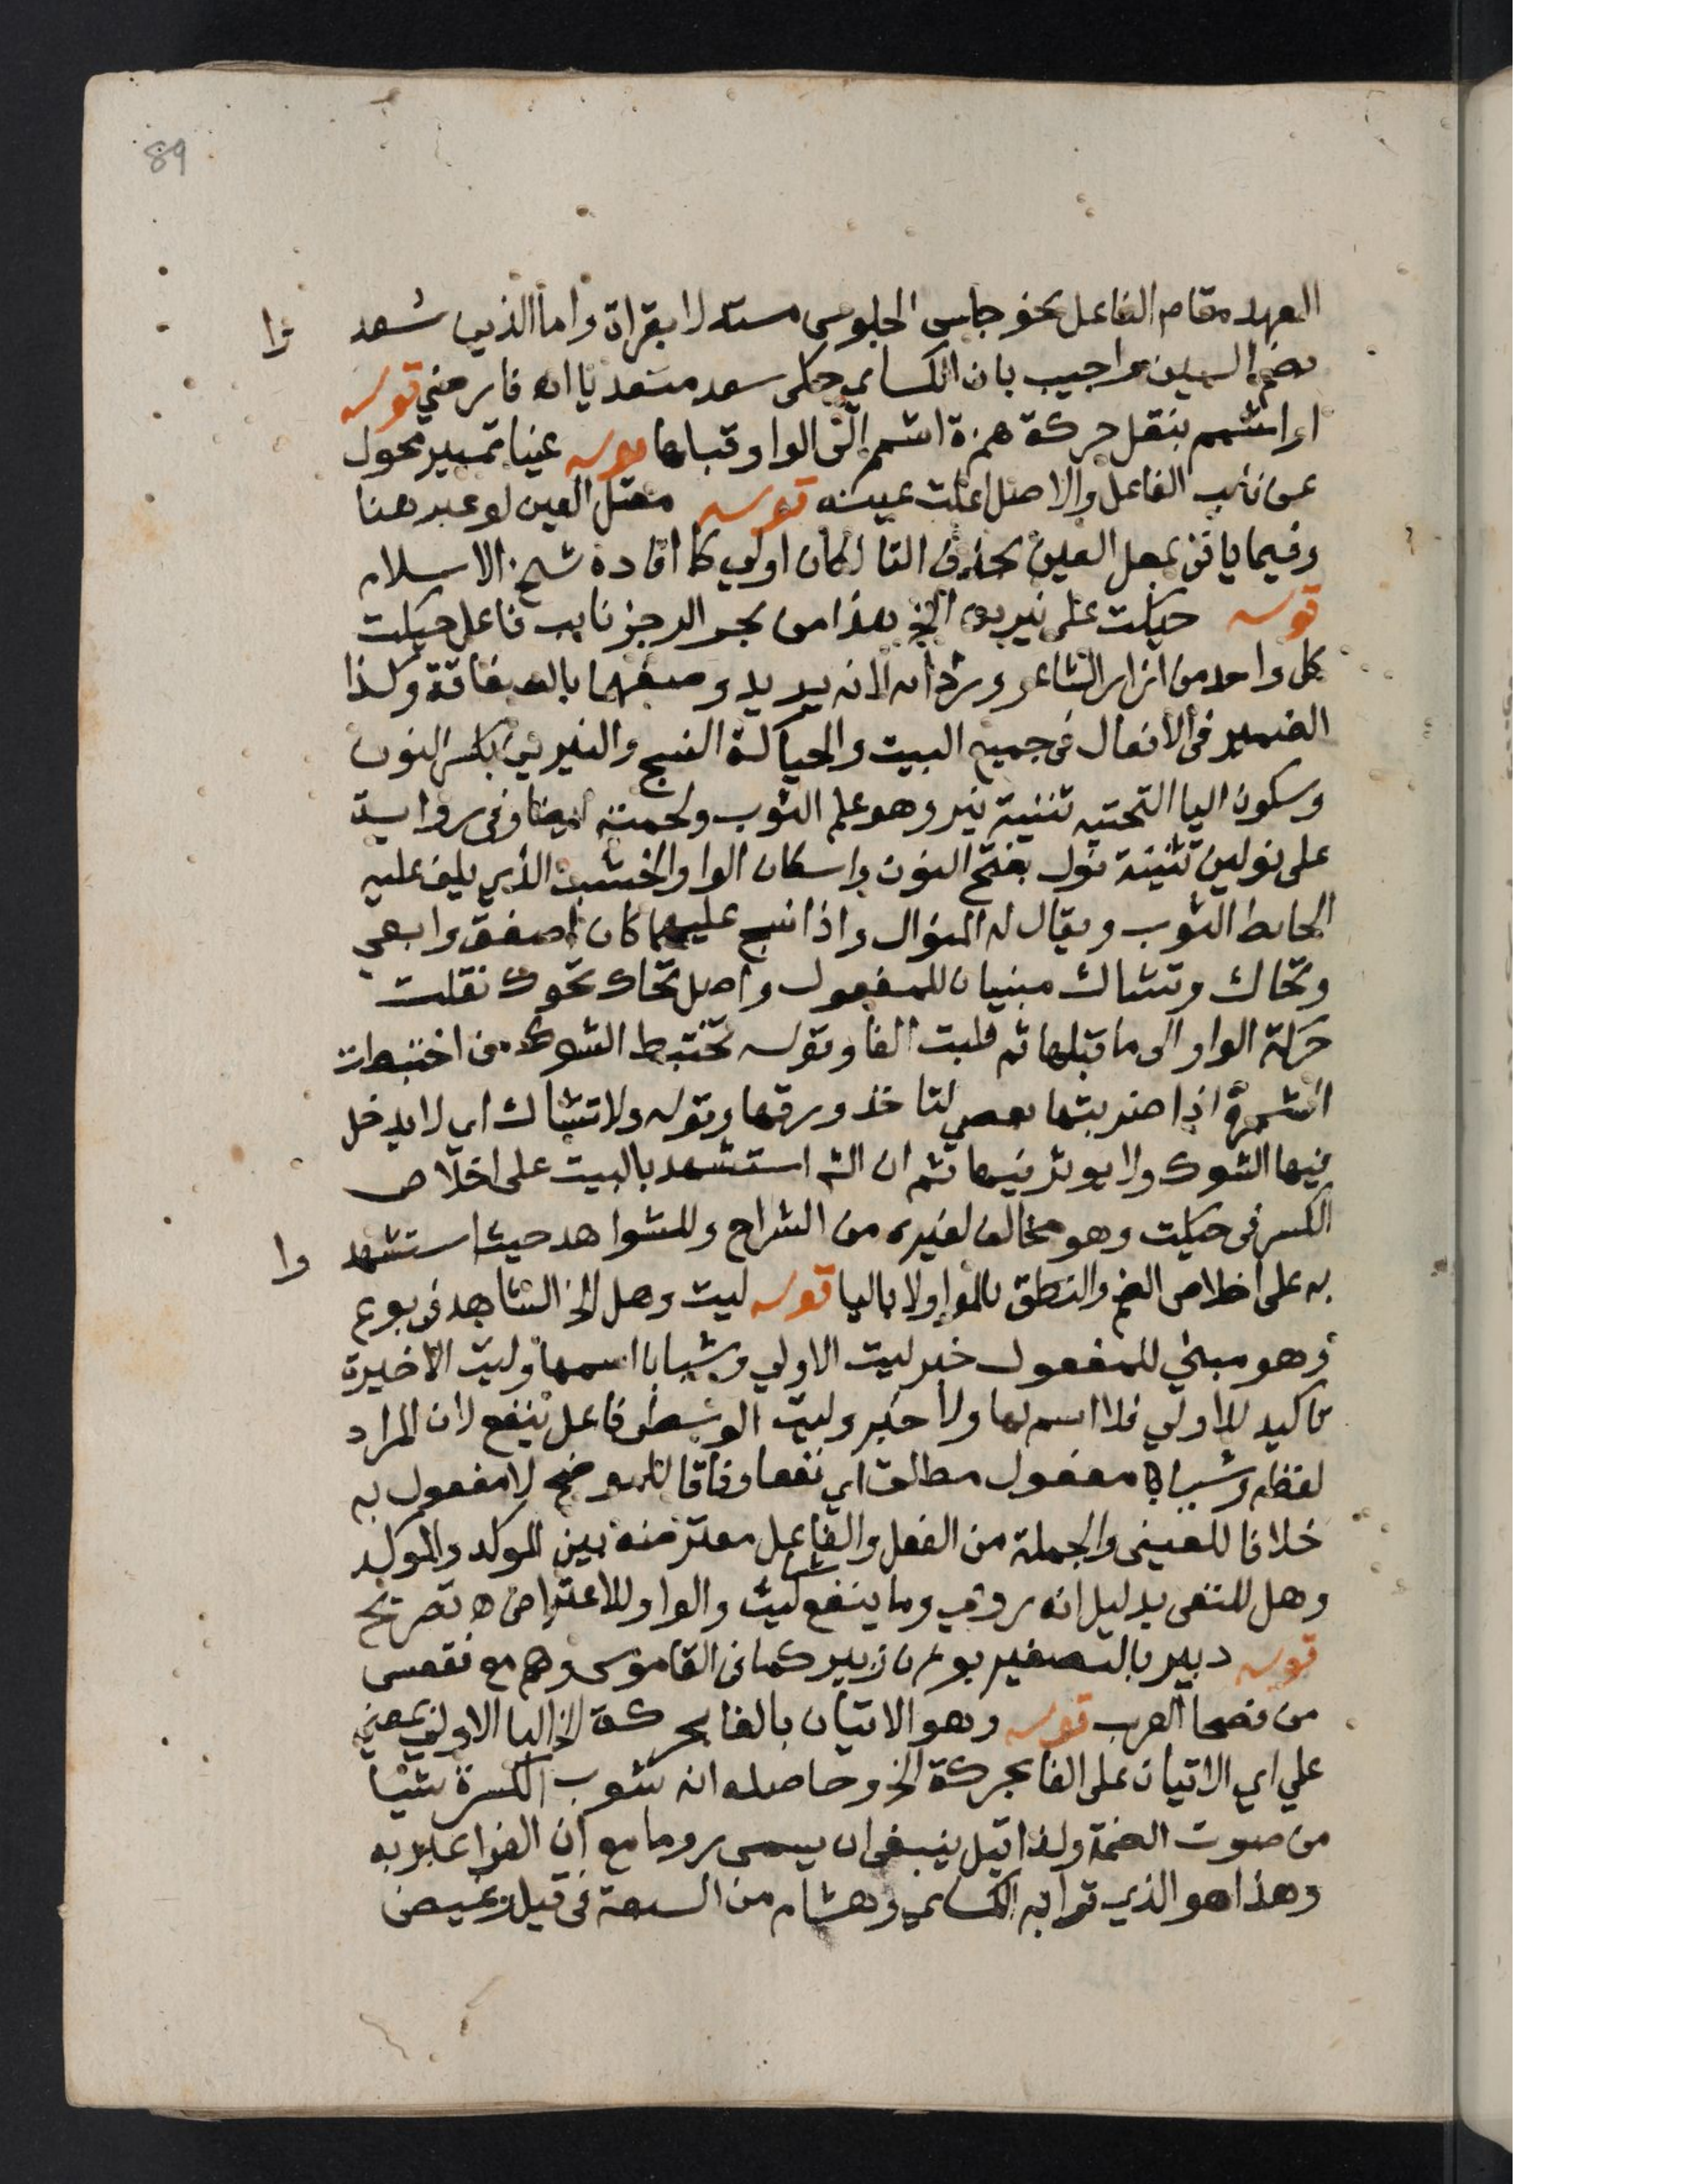 89
العهد مقام الفاعل نحو جلس الجلوس مسئلة لا بقراة واما الذين سُعد وا
بضم السين واجيب بان الكساي حكى سعد متعديا اه فارضي قوله
او اشمم بنقل حركة همزة اشمم الى الواو قبلها قوله عينا تمييز محول
عن نائب الفاعل والاصل اعلت عينه قوله معتل العين لو عبر هنا
وفيما ياتي بمعل العين بحذف التا لكان اولي كما افاده شيخ الاسلام
قوله حيكت على نيرين الخ هذا من بحر الرجز نايب فاعل حيكت
كل واحد من ازار الشاعر وردائه لانه يريد وصفهما بالصفاقة وكذا
الضمير في الافعال في جميع البيت والحياكة النسج والنيرين بكسر النون
وسكون اليا التحتيه تثنية نير وهو علم الثوب ولحمته ايضا وفي رواية
على نولين تثنية نول بفتح النون واسكان الواو الخشب الذي يلف عليه
الحائط الثوب ويقال له المنوال واذا نسج عليهما كان اصفق وابهى
وتحاك وتشاك مبنيان للمفعول واصل تحاك تحوك نقلت
حركة الواو الى ما قبلها ثم قلبت الفا وقوله تختبط الشوك من اختبطت
الشجرة اذا ضربتها بعصى لتاخذ ورقها وقوله ولا تشاك اي لا يدخل
فيها الشوك ولا يوثر فيها ثم ان الش استشهد بالبيت على اخلاص
الكسر في حيكت وهو مخالف لغيره من الشراح وللشواهد حيث استشهد وا
به على اخلاص الضم والنطق بالواو لا باليا قوله ليت وهل الخ الشاهد في بوع
وهو مبني للمفعول خبر ليت الاولي وشبابا اسمها وليت الاخيرة
تاكيد للاولي فلا اسم لها ولا خبر وليت الوسطى فاعل ينفع لان المراد
لفظه وشيا مفعول مطلق اي نفعا وفاقا للموضح لا مفعول به
خلافا للعيني والجملة من الفعل والفاعل معترضه بين الموكد والموكد
وهل للنفى بدليل انه روي وما ينفع شيا ليت والواو للاعتراض اه تصريح
قوله دبير بالتصغير بوزن زبير كما في القاموس وهم مع فقعس
من فصحا العرب قوله وهو الاتيان بالفا بحركة الخ البا الاولي بمعني
علي اي الاتيان على الفا بحركة الخ وحاصله انه شوب الكسرة شيا
من صوت الضمة ولذا قيل ينبغي ان يسمى روما مع ان الفرا عبر به
وهذا هو الذي قرا به الكساي وهشام من السبعة في قيل وغيض